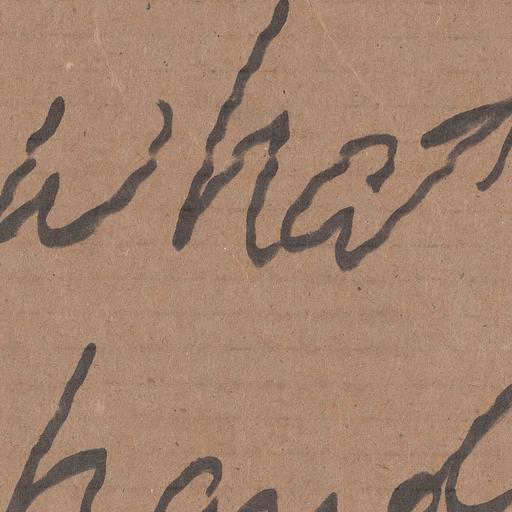 what
hand